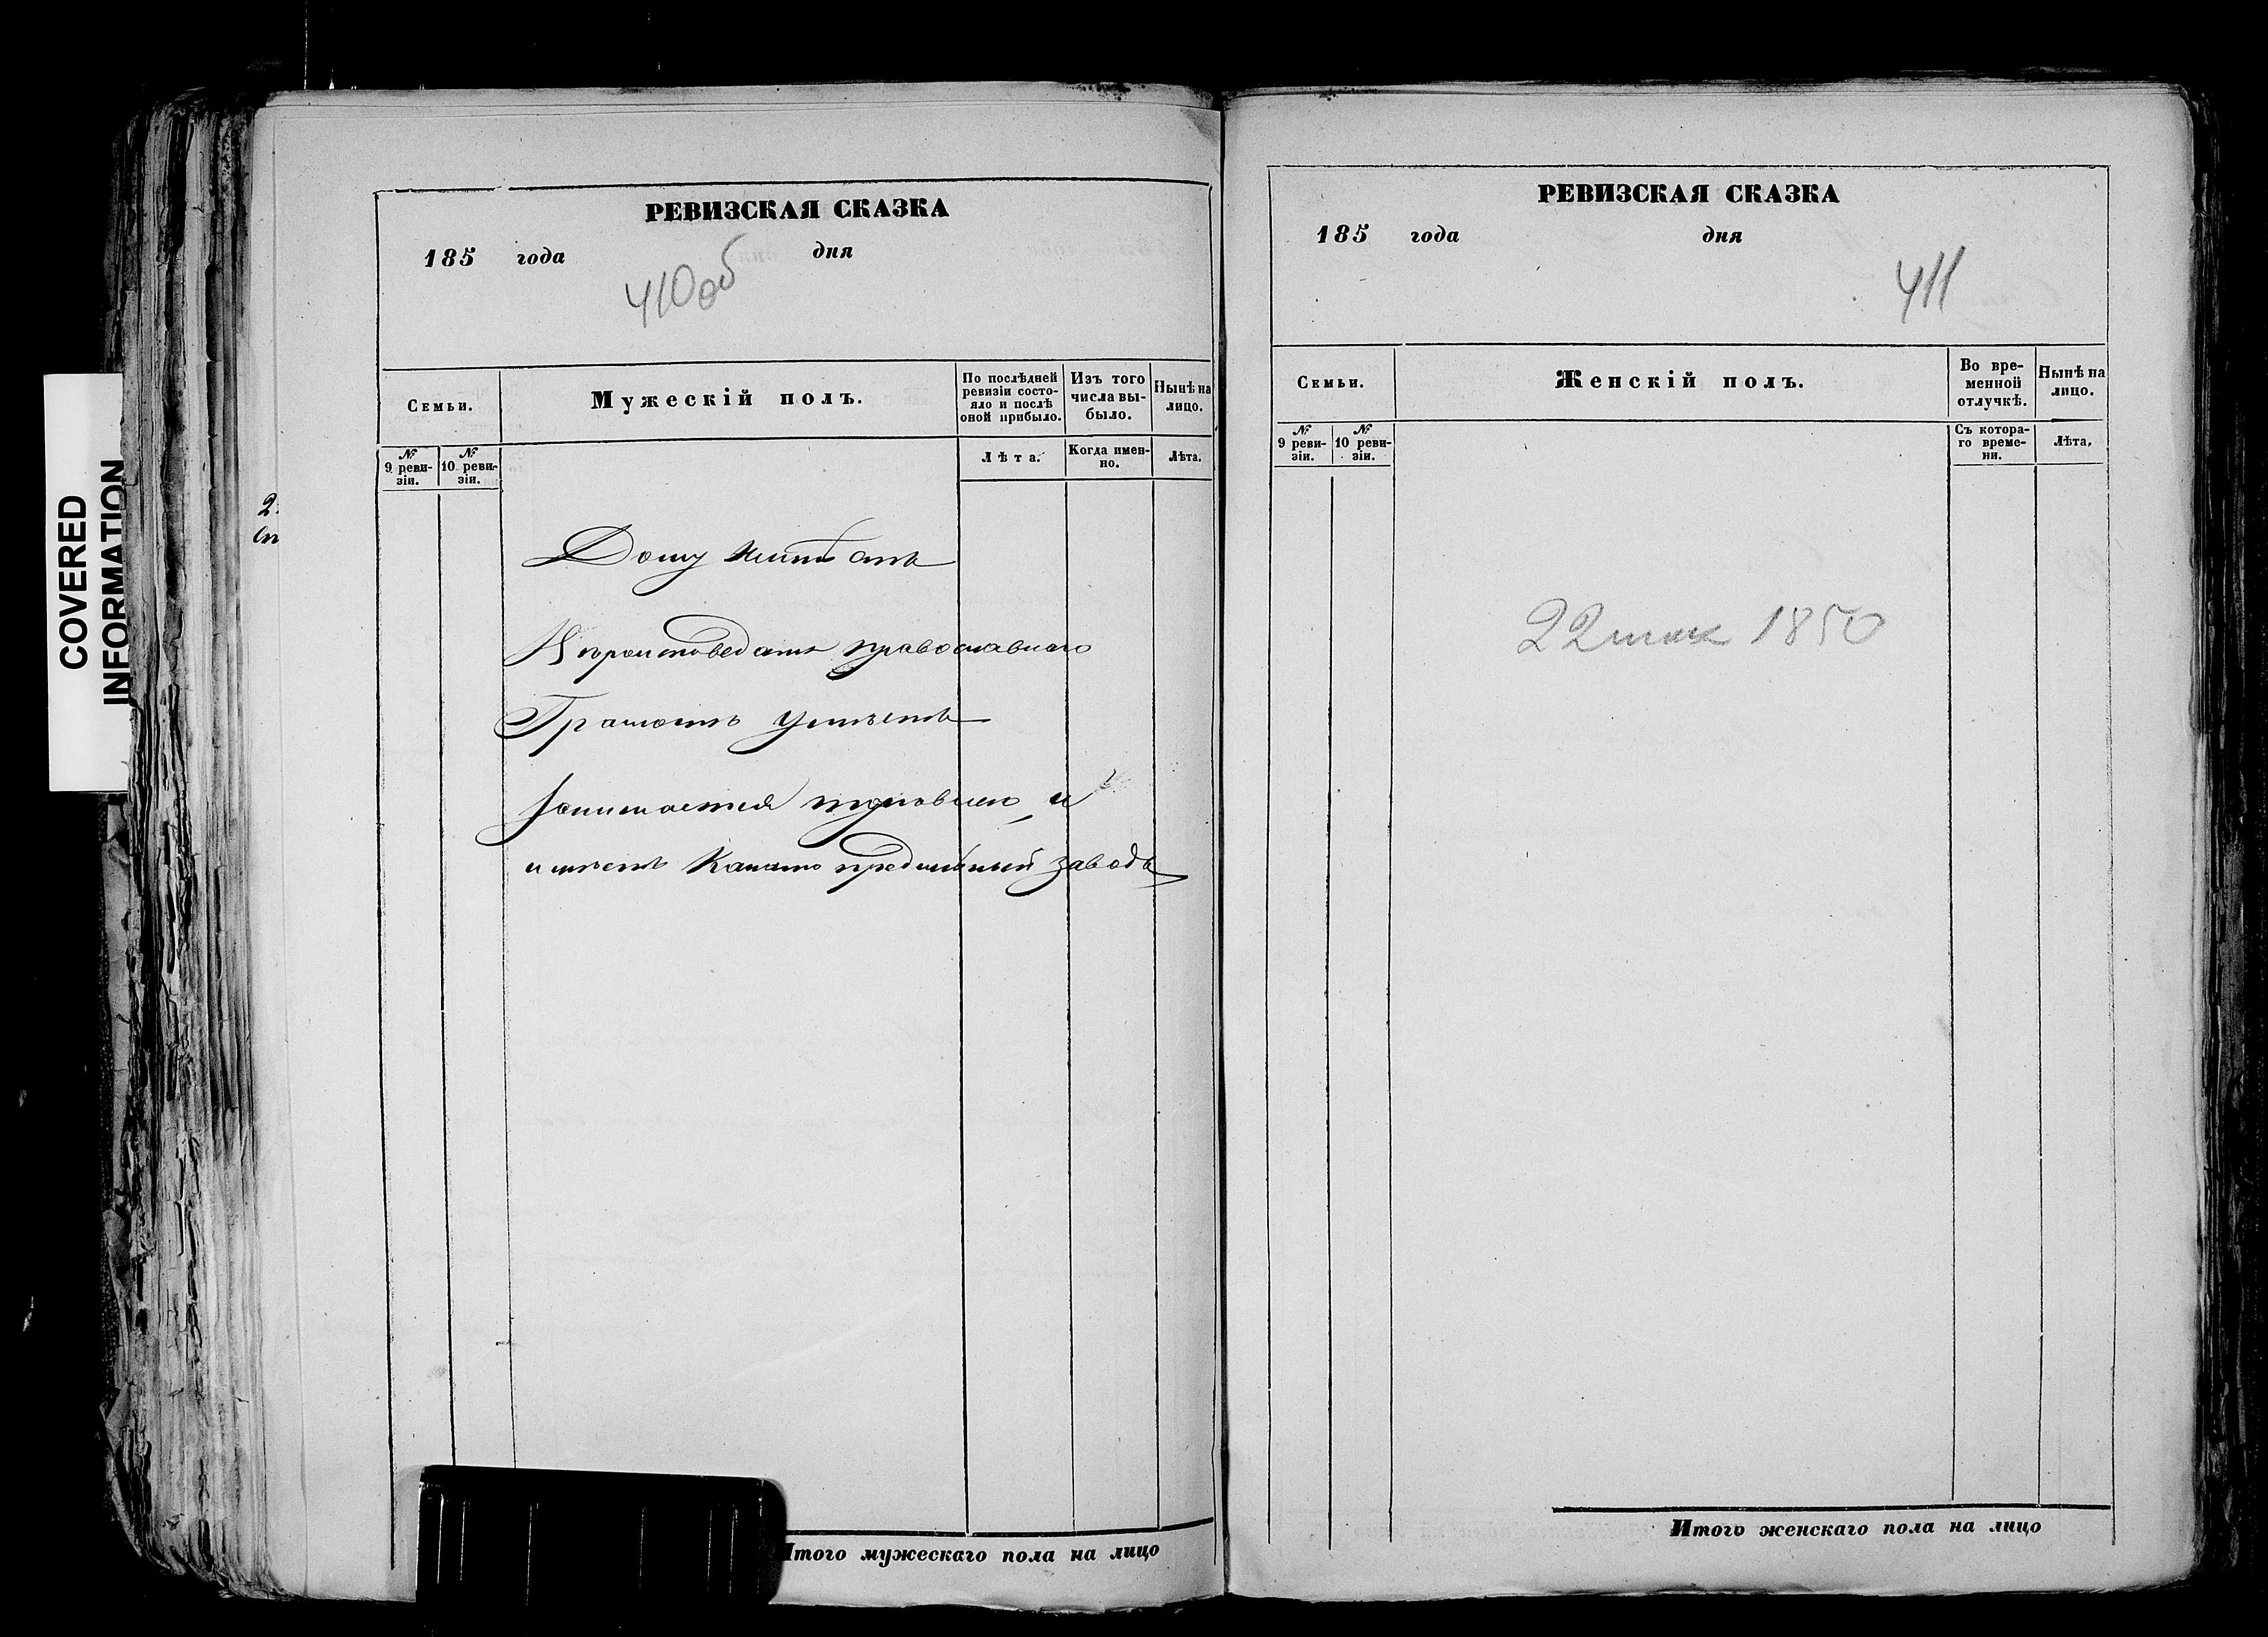 COVERED
INFORMATION
РЕВИЗСКАЯ СКАЗКА
185 года дня
410об
Семьи.
Мужескій полъ.
По послѣдней ревизіи состояло и послѣ оной прибыло.
Изъ того числа выбыло.
Нынѣ на лицо.
№ 9 ревизіи.
№ 10 ревизіи.
Лѣта.
Когда именно.
Лѣта.
Дому неимѣетъ
Вѣроисповеданія православнаго
Грамотѣ умѣетъ
Занимается торговлею, и
имѣетъ Канато прядильный заводъ
Итого мужескаго пола на лицо
РЕВИЗСКАЯ СКАЗКА
185 года дня
411
Семьи.
Женскій полъ.
Во временной отлучкѣ.
Нынѣ на лицо.
№ 9 ревизіи.
№ 10 ревизіи.
Съ котораго времени.
Лѣта.
22 мая 1850
Итого женскаго пола на лицо